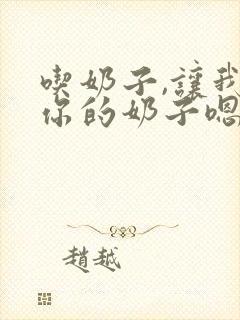 喫奶子,讓我
你的奶子嗯
趙越